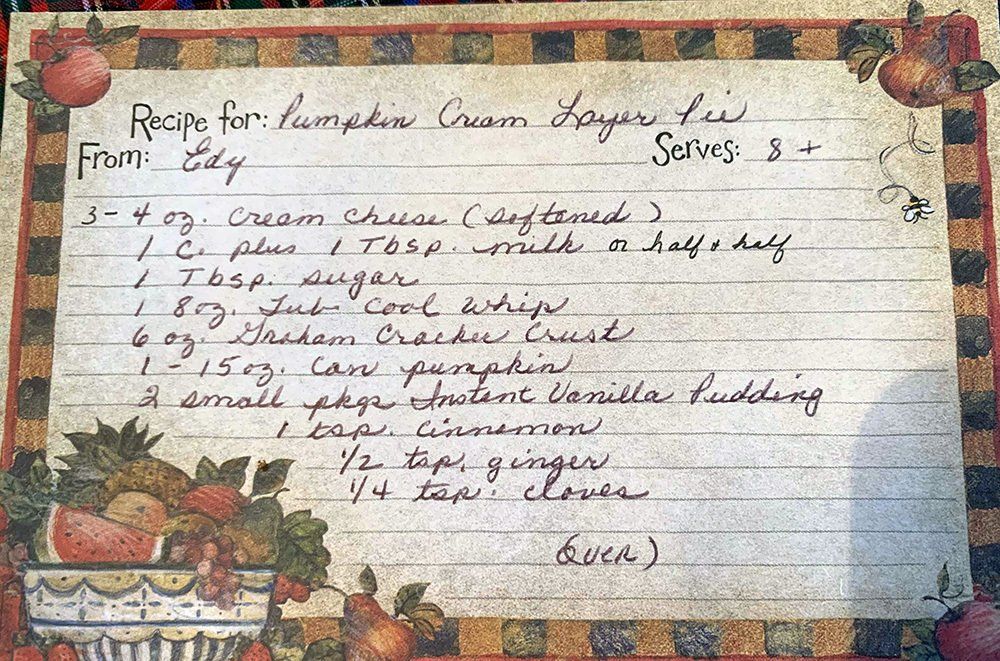 Recipe for: Pumpkin Cream Layer Pie
From: Edy Serves: 8 +
3 - 4 oz. cream cheese (softened)
1 C. plus 1 Tbsp. milk or half & half
1 Tbsp. sugar
1 8oz. Tub Cool Whip
6 oz. Graham Cracker Crust
1 - 15 oz. Can pumpkin
2 small pkgs Instant Vanilla Pudding
1 tsp. cinnamon
1/2 tsp. ginger
1/4 tsp. cloves
(over)